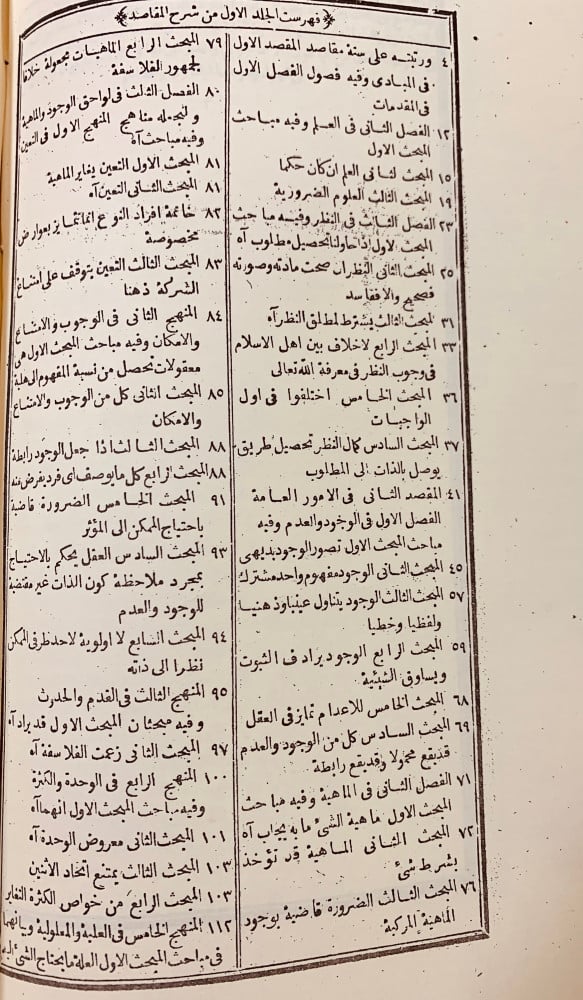 فهرست الجلد الاول من شرح المقاصد
٤ ورتبته على ستة مقاصد المقصد الاول
فى المبادى وفيه فصول الفصل الاول
فى المقدمات
١٢ الفصل الثانى فى العلم وفيه مباحث
المبحث الاول
١٥ المبحث لثانى العلم ان كان حكما
١٩ المبحث الثالث العلوم الضرورية
٢٣ الفصل الثالث فى النظر وفيه مباحث
المبحث لاول اذا حاولنا تحصيل مطلوب آه
٢٥ المبحث الثانى النظران صحت مادته وصورته
فصحيح والا ففاسد
٣١ المبحث الثالث يشترط لمطلق النظر آه
٣٣ المبحث الرابع لاخلاف بين اهل الاسلام
فى وجوب النظر فى معرفة الله تعالى
٣٦ المبحث الخامس اختلفوا فى اول
الواجبات
٣٧ المبحث السادس كمال النظر تحصيل طريق
يوصل بالذات الى المطلوب
٤١ المقصد الثانى فى الامور العامة
الفصل الاول فى الوجود والعدم وفيه
مباحث المبحث الاول تصور الوجود بديهى
٤٥ المبحث الثانى الوجود مفهوم واحد مشترك
٥٧ المبحث الثالث الوجود يتناول عينيا وذهنيا
ولفظيا وخطيا
٥٩ المبحث الرابع الوجود يرادف الثبوت
ويساوق الشيئية
٦٨ المبحث الخامس للاعدام تمايز فى العقل
٦٩ المبحث السادس كل من الوجود والعدم
قد يقع محمولا وقد يقع رابطة
٧١ الفصل الثانى فى الماهية وفيه مباحث
المبحث الاول ماهية الشئ ما به يجاب آه
٧٢ المبحث الثانى الماهية قد تؤخذ
بشرط شئ
٧٦ المبحث الثالث الضرورة قاضية بوجود
الماهية المركبة
٧٩ المبحث الرابع الماهيات مجعولة خلافا
لجمهور الفلاسفة
٨٠ الفصل الثالث فى لواحق الوجود والماهية
ولنجعله مناهج المنهج الاول فى التعين
وفيه مباحث آه
٨١ المبحث الاول التعين يغاير الماهية
٨١ المبحث الثانى التعين آه
٨٢ خاتمة افراد النوع انما تتمايز بعوارض
مخصوصة
٨٣ المبحث الثالث التعين يتوقف على امتناع
الشركة ذهنا
٨٤ المنهج الثانى فى الوجوب والامتناع
والامكان وفيه مباحث المبحث الاول هى
معقولات تحصل من نسبة المفهوم الى هلية
٨٥ المبحث الثانى كل من الوجوب والامتناع
والامكان
٨٨ المبحث الثالث اذا جعل الوجود رابطة
٨٨ المبحث الرابع كل ما يوصف اى فرد يفرض منه
٩١ المبحث الخامس الضرورة قاضية
باحتياج الممكن الى المؤثر
٩٣ المبحث السادس العقل يحكم بالاحتياج
بمجرد ملاحظة كون الذات غير مقتضية
للوجود والعدم
٩٤ المبحث السابع لا اولوية لاحد طرفى الممكن
نظرا الى ذاته
٩٥ المنهج الثالث فى القدم والحدوث
وفيه مبحثان المبحث الاول قد يراد آه
٩٧ المبحث الثانى زعمت الفلاسفة آه
١٠٠ المنهج الرابع فى الوحدة والكثرة
وفيه مباحث المبحث الاول انهما آه
١٠١ المبحث الثانى معروض الوحدة آه
١٠٣ المبحث الثالث يمتنع اتحاد الاثنين
١٠٣ المبحث الرابع من خواص الكثرة التغاير
١١٢ المنهج الخامس فى العلية والمعلولية وبيانهما
فى مباحث المبحث الاول العلة ما يحتاج الشئ اليه